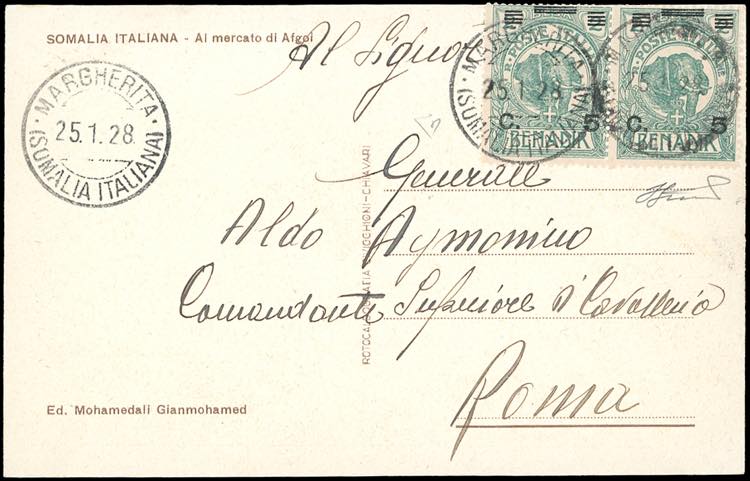 SOMALIA ITALIANA - Al mercato di Afgoi
MARGHERITA
25.1.28
(SOMALIA ITALIANA)
MARGHERITA
25.1.28
(SOMALIA ITALIANA)
R. POSTE ITALIANE
C. 5
BENADIR
R. POSTE ITALIANE
C. 5
BENADIR
Al Signor
Generale
Aldo Aymonino
Comandante Superiore d'Cavalleria
Roma
Ed. Mohamedali Gianmohamed